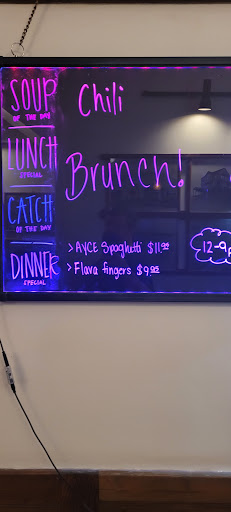 SOUP
OF THE DAY
Chili
LUNCH
SPECIAL
Brunch!
CATCH
OF THE DAY
DINNER
SPECIAL
> AYCE Spaghetti $11.99
> Flava fingers $9.95
12-9